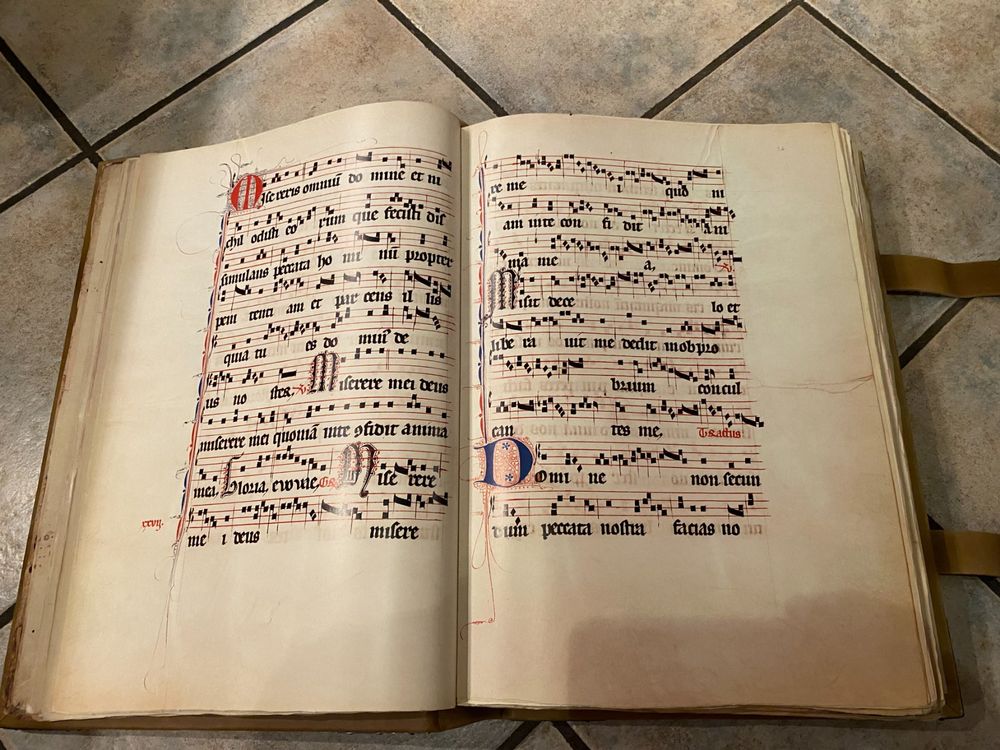 Misereris omniũ do mine et ni
chil odisti eo rum que fecisti dis
simulans peccata ho mi nũ propter
peni tenti am et par cens il lis
quia tu es do minꝰ de
us no ster, ℣. Miserere mei deus
miserere mei quoniã in te ꝯfidit anima
mea. Gloria, euouae. Gr. Mise rere
xxvij.
me i deus misere
re me i quõ in
am in te con fi dit am
ma me a, ℣.
Misit de ce lo et
libe ra uit me dedit in obpro
brium concul
can tes me, Tractus
Domi ne non secun
dum peccata nostra facias no